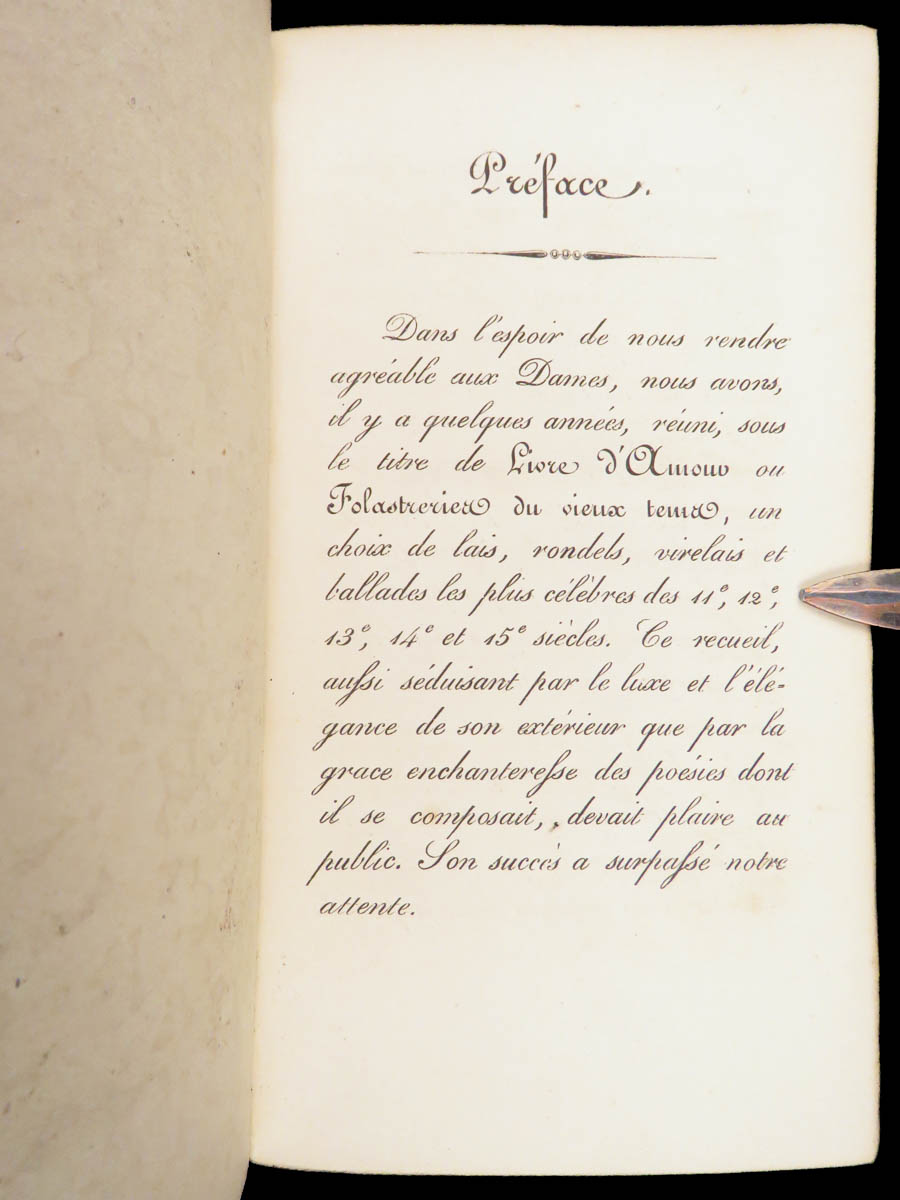 Préface.
Dans l'espoir de nous rendre
agréable aux Dames, nous avons,
il y a quelques années, réuni, sous
le titre de Livre d'Amour ou
Folastreries du vieux tems, un
choix de lais, rondels, virelais et
ballades les plus célèbres des 11e, 12e,
13e, 14e et 15e siècles. Ce recueil,
aufsi séduisant par le luxe et l'élé-
gance de son extérieur que par la
grace enchanterefse des poésies dont
il se composait, devait plaire au
public. Son succès a surpafsé notre
attente.